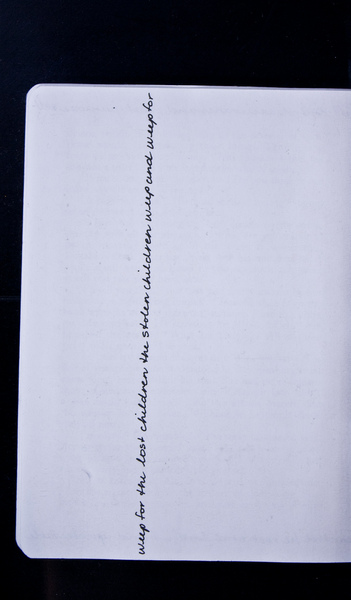 weep for the lost children the stolen children weep and weep for